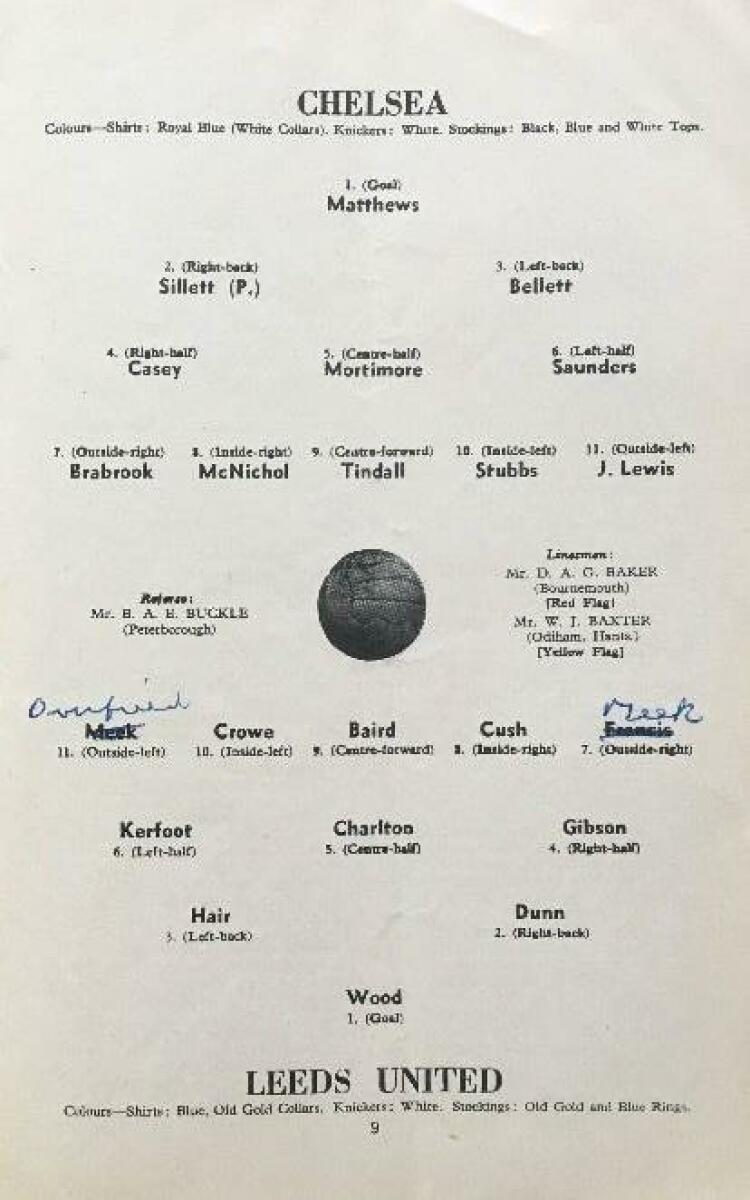 CHELSEA
Colours—Shirts: Royal Blue (White Collars). Knickers: White. Stockings: Black, Blue and White Tops.
1. (Goal)
Matthews
2. (Right-back) 3. (Left-back)
Sillett (P.) Bellett
4. (Right-half) 5. (Centre-half) 6. (Left-half)
Casey Mortimore Saunders
7. (Outside-right) 8. (Inside-right) 9. (Centre-forward) 10. (Inside-left) 11. (Outside-left)
Brabrook McNichol Tindall Stubbs J. Lewis
Linesmen:
Mr. D. A. G. BAKER
(Bournemouth)
[Red Flag]
Referee:
Mr. B. A. E. BUCKLE
(Peterborough)
Mr. W. J. BAXTER
(Odiham, Hants.)
[Yellow Flag]
Overfield Meek
Meek Crowe Baird Cush Francis
11. (Outside-left) 10. (Inside-left) 9. (Centre-forward) 8. (Inside-right) 7. (Outside-right)
Kerfoot Charlton Gibson
6. (Left-half) 5. (Centre-half) 4. (Right-half)
Hair Dunn
3. (Left-back) 2. (Right-back)
Wood
1. (Goal)
LEEDS UNITED
Colours—Shirts: Blue, Old Gold Collars. Knickers: White. Stockings: Old Gold and Blue Rings.
9